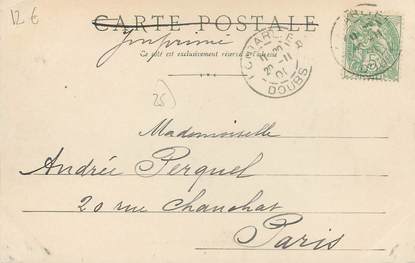 12 €
CARTE POSTALE
Imprimé
Ce côté est exclusivement réservé à l'adresse
PONTARLIER
20-11
01
DOUBS
25
Mademoiselle
Andrée Perquel
20 rue Chauchat
Paris